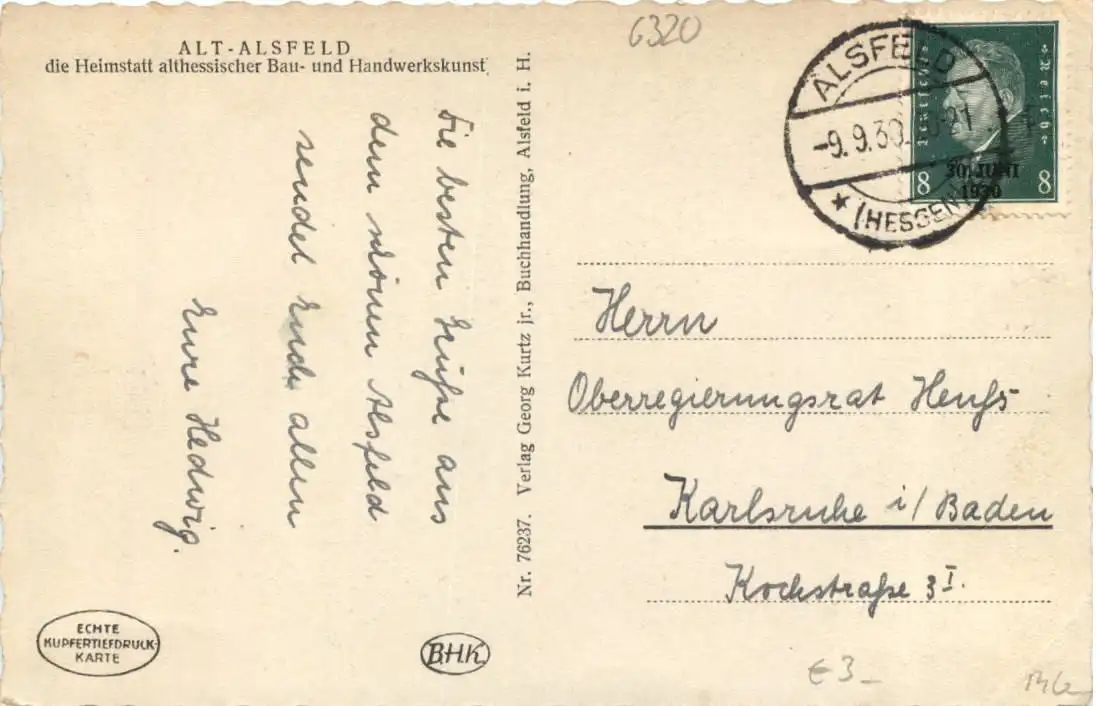 ALT-ALSFELD
die Heimstatt althessischer Bau- und Handwerkskunst
Die besten Grüße aus
dem schönen Alsfeld
sendet Euch allen
Eure Hedwig.
ECHTE
KUPFERTIEFDRUCK-
KARTE
B.H.K.
Nr. 76237. Verlag Georg Kurtz jr., Buchhandlung, Alsfeld i. H.
6320
ALSFELD
-9.9.30.
* (HESSEN)
Deutsches Reich
30. JUNI
1930
8 8
Herrn
Oberregierungsrat
Karlsruhe i/Baden
Kochstraße 3 I.
€ 3_